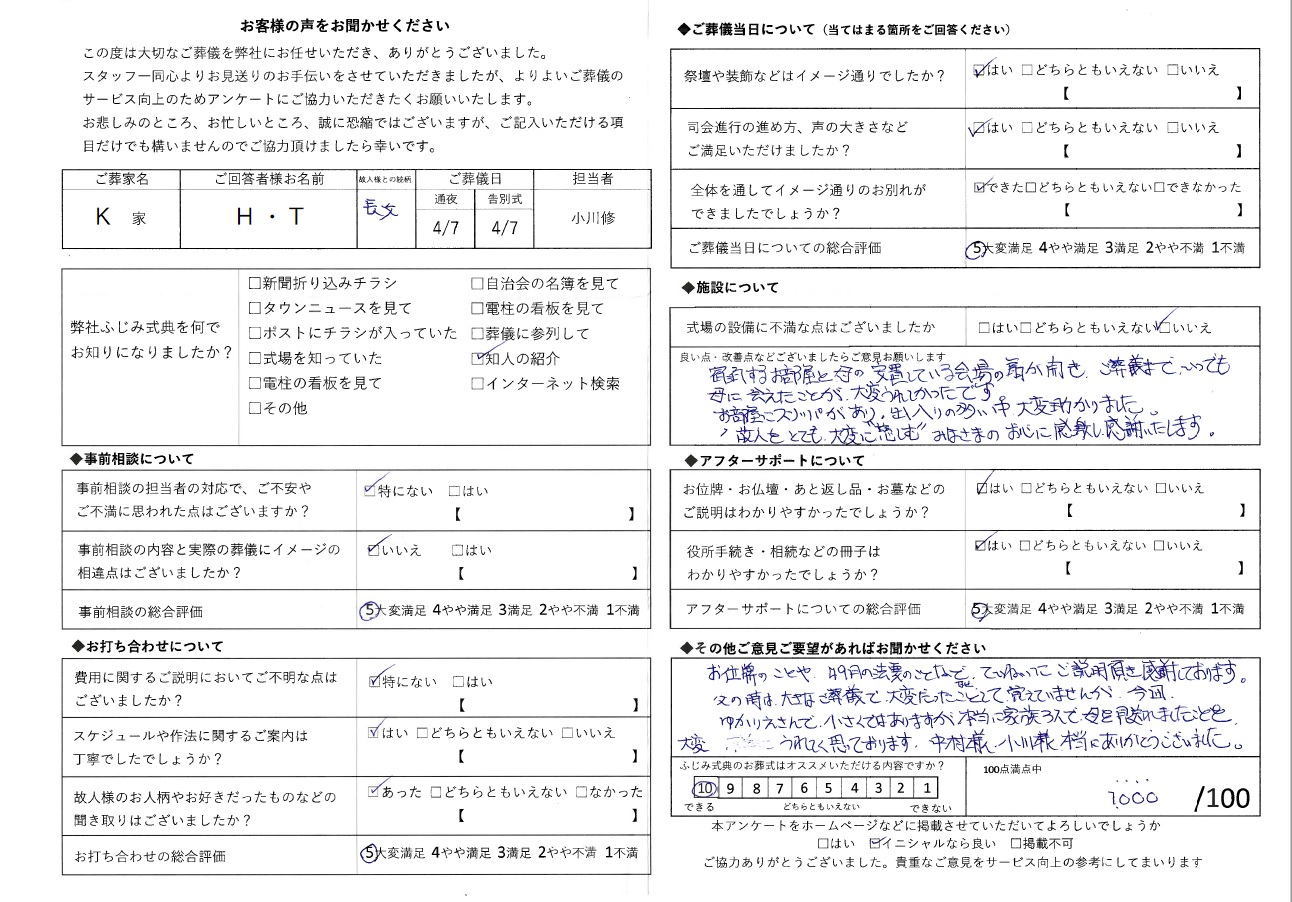 お客様の声をお聞かせください
この度は大切なご葬儀を弊社にお任せいただき、ありがとうございました。
スタッフ一同心よりお見送りのお手伝いをさせていただきましたが、よりよいご葬儀の
サービス向上のためアンケートにご協力いただきたくお願いいたします。
お悲しみのところ、お忙しいところ、誠に恐縮ではございますが、ご記入いただける項
目だけでも構いませんのでご協力頂けましたら幸いです。
ご葬家名 ご回答者様お名前 故人様との続柄 ご葬儀日 担当者
通夜 告別式
K 家 H・T 長女 4/7 4/7 小川修
弊社ふじみ式典を何で
お知りになりましたか？
□新聞折り込みチラシ □自治会の名簿を見て
□タウンニュースを見て □電柱の看板を見て
□ポストにチラシが入っていた □葬儀に参列して
□式場を知っていた ☑知人の紹介
□電柱の看板を見て □インターネット検索
□その他
◆事前相談について
事前相談の担当者の対応で、ご不安や
ご不満に思われた点はございますか？
☑特にない □はい
【 】
事前相談の内容と実際の葬儀にイメージの
相違点はございましたか？
☑いいえ □はい
【 】
事前相談の総合評価 5大変満足 4やや満足 3満足 2やや不満 1不満
◆お打ち合わせについて
費用に関するご説明においてご不明な点は
ございましたか？
☑特にない □はい
【 】
スケジュールや作法に関するご案内は
丁寧でしたでしょうか？
☑はい □どちらともいえない □いいえ
【 】
故人様のお人柄やお好きだったものなどの
聞き取りはございましたか？
☑あった □どちらともいえない □なかった
【 】
お打ち合わせの総合評価 5大変満足 4やや満足 3満足 2やや不満 1不満
◆ご葬儀当日について（当てはまる箇所をご回答ください）
祭壇や装飾などはイメージ通りでしたか？
☑はい □どちらともいえない □いいえ
【 】
司会進行の進め方、声の大きさなど
ご満足いただけましたか？
☑はい □どちらともいえない □いいえ
【 】
全体を通してイメージ通りのお別れが
できましたでしょうか？
☑できた □どちらともいえない □できなかった
【 】
ご葬儀当日についての総合評価 5大変満足 4やや満足 3満足 2やや不満 1不満
◆施設について
式場の設備に不満な点はございましたか □はい □どちらともいえない ☑いいえ
良い点・改善点などございましたらご意見お願いします
するお部屋と母の安置している会場の扉が開き、ご葬儀まで、いつでも
母に会えたことが、大変うれしかったです。
お部屋にスリッパがあり、出入りの多い中大変助かりました。
故人をとても大変に"悲しむ"みなさまのお心に感激し感謝いたします。
◆アフターサポートについて
お位牌・お仏壇・あと返し品・お墓などの
ご説明はわかりやすかったでしょうか？
☑はい □どちらともいえない □いいえ
【 】
役所手続き・相続などの冊子は
わかりやすかったでしょうか？
☑はい □どちらともいえない □いいえ
【 】
アフターサポートについての総合評価 5大変満足 4やや満足 3満足 2やや不満 1不満
◆その他ご意見ご要望があればお聞かせください
お位牌のことや、49日の法要のことなど、ていねいにご説明頂き感謝しております。
父の時は大きな葬儀で、大変だったことしか覚えていませんが、今回、
ゆかりえさんで、小さくではありますが、本当に家族3人で、母を見送れましたことを、
大変 うれしく思っております。中村様、小川様、本当にありがとうございました。
ふじみ式典のお葬式はオススメいただける内容ですか？
10 9 8 7 6 5 4 3 2 1
できる どちらともいえない できない
100点満点中
1000 /100
本アンケートをホームページなどに掲載させていただいてよろしいでしょうか
□はい ☑イニシャルなら良い □掲載不可
ご協力ありがとうございました。貴重なご意見をサービス向上の参考にしてまいります